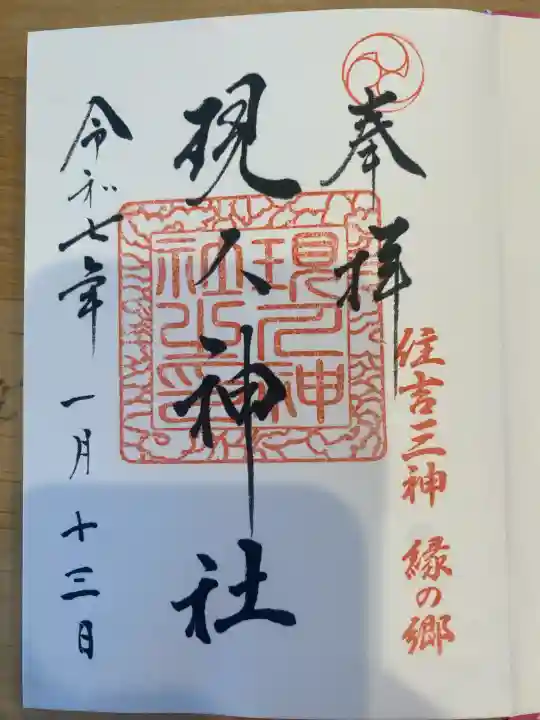 奉拝
住吉三神 縁の郷
現人神社
現人神
社之印
令和七年 一月 十三日